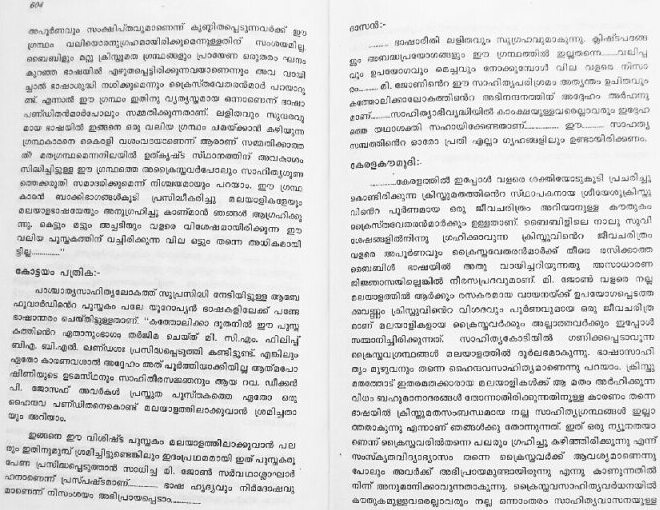 604
അപൂർണവും സംക്ഷിപ്തവുമാണെന്ന് കുണ്ഠിതപ്പെടുന്നവർക്ക് ഈ
ഗ്രന്ഥം വലിയൊരനുഗ്രഹമായിരിക്കുമെന്നുള്ളതിന് സംശയമില്ല.
ബൈബിളും മറ്റു ക്രിസ്തുമത ഗ്രന്ഥങ്ങളും പ്രായേണ ഒരുതരം ഘനം
കുറഞ്ഞ ഭാഷയിൽ എഴുതപ്പെട്ടിരിക്കുന്നവയാണെന്നും അവ വായി
ച്ചാൽ ഭാഷാശുദ്ധി നശിക്കുമെന്നും ക്രൈസ്തവേതരന്മാർ പറയാറു
ണ്ട്. എന്നാൽ ഈ ഗ്രന്ഥം ഇതിനു വ്യത്യസ്തമായ ഒന്നാണെന്ന് ഭാഷാ
പണ്ഡിതൻമാർപോലും സമ്മതിക്കുന്നതാണ്. ലളിതവും സുന്ദരവു
മായ ഭാഷയിൽ ഇങ്ങനെ ഒരു വലിയ ഗ്രന്ഥം ചമയ്ക്കാൻ കഴിയുന്ന
ഗ്രന്ഥകാരനെ കൈരളി വശംവദയാണെന്ന് ആരാണ് സമ്മതിക്കാത്ത
ത്? മതഗ്രന്ഥമെന്നനിലയിൽ ഉത്കൃഷ്ട സ്ഥാനത്തിന് അവകാശം
സിദ്ധിച്ചിട്ടുള്ള ഈ ഗ്രന്ഥത്തെ അക്രൈസ്തവർപോലും സാഹിത്യഗുണ
ത്തെക്കരുതി സമാദരിക്കുമെന്ന് നിശ്ചയമായും പറയാം. ഈ ഗ്രന്ഥ
കാരൻ ബാക്കിഭാഗങ്ങൾകൂടി പ്രസിദ്ധീകരിച്ചു മലയാളികളേയും
മലയാളഭാഷയേയും അനുഗ്രഹിച്ചു കാണ്മാൻ ഞങ്ങൾ ആഗ്രഹിക്കു
ന്നു. കെട്ടും മട്ടും അച്ചടിയും വളരെ വിശേഷമായിരിക്കുന്ന ഈ
വലിയ പുസ്തകത്തിന് വച്ചിരിക്കുന്ന വില ഒട്ടും തന്നെ അധികമായി
ട്ടില്ല............”
കോട്ടയം പത്രിക:-
പാശ്ചാത്യസാഹിത്യലോകത്ത് സുപ്രസിദ്ധി നേടിയിട്ടുള്ള ആബേ
ഫുവാർഡിന്റെ പുസ്തകം പല യൂറോപ്യൻ ഭാഷകളിലേക്ക് പണ്ടേ
ഭാഷാന്തരം ചെയ്തിട്ടുള്ളതാണ്. “കത്തോലിക്കാ ദൂതനിൽ ഈ പുസ്ത
കത്തിൻെറ ഏതാനുംഭാഗം തർജിമ ചെയ്ത് മി. സി.എം. ഫിലിപ്പ്
ബി.എ. ബി.എൽ. ഖണ്ഡശഃ പ്രസിദ്ധപ്പെടുത്തി കണ്ടിട്ടുണ്ട്. എങ്കിലും
ഏതോ കാരണവശാൽ അദ്ദേഹം അത് പൂർത്തിയാക്കിയില്ല. ആത്മപോ
ഷിണിയുടെ ഉടമസ്ഥനും സാഹിതീരസജ്ഞനും ആയ റവ. ഡീക്കൻ
പി. ജോസഫ് അവർകൾ പ്രസ്തുത പുസ്തകത്തെ ഏതോ ഒരു
ഹൈന്ദവ പണ്ഡിതനെകൊണ്ട് മലയാളത്തിലാക്കുവാൻ ശ്രമിച്ചതാ
യും അറിയാം.
ഇങ്ങനെ ഈ വിശിഷ്ട പുസ്തകം മലയാളത്തിലാക്കുവാൻ പല
രും ഇതിനുമുമ്പ് ശ്രമിച്ചിട്ടുണ്ടെങ്കിലും ഇദംപ്രഥമമായി ഇത് പുസ്തകരൂ
പേണ പ്രസിദ്ധപ്പെടുത്താൻ സാധിച്ച മി. ജോൺ സർവഥാശ്ലാഘാർ
ഹനാണെന്ന് പ്രസ്പഷ്ടമാണ്............ ഭാഷ ഹൃദ്യവും നിർദോഷവു
മാണെന്ന് നിസംശയം അഭിപ്രായപ്പെടാം............
ദാസൻ:-
.......... ഭാഷാരീതി ലളിതവും സുഗ്രഹവുമാകുന്നു. ക്ലിഷ്ടപദങ്ങ
ളും അബദ്ധപ്രയോഗങ്ങളും ഈ ഗ്രന്ഥത്തിൽ ഇല്ലതന്നെ......വലിപ്പ
വും ഉപയോഗവും മെച്ചവും നോക്കുമ്പോൾ വില വളരെ നിസാ
രം. മി. ജോണിൻെറ ഈ സാഹിത്യപരിശ്രമം അത്യന്തം ഉചിതവും
കത്തോലിക്കാലോകത്തിൻെറ അഭിനന്ദനത്തിന് അദ്ദേഹം അർഹനു
മാണ്.......സാഹിത്യാഭിവൃദ്ധിയിൽ കാംക്ഷയുള്ളവരെല്ലാവരും ഇദ്ദേഹ
ത്തെ യഥാശക്തി സഹായിക്കേണ്ടതാണ്............ ഈ........ സാഹിത്യ
സമ്പത്തിൻെറ ഓരോ പ്രതി എല്ലാ ഗൃഹങ്ങളിലും ഉണ്ടായിരിക്കണം.
കേരളകൗമുദി:-
..........കേരളത്തിൽ ഇപ്പോൾ വളരെ ശക്തിയോടുകൂടി പ്രചരിച്ചു
കൊണ്ടിരിക്കുന്ന ക്രിസ്തുമതത്തിൻെറ സ്ഥാപകനായ ശ്രീയേശുക്രിസ്തു
വിൻെറ പൂർണമായ ഒരു ജീവചരിത്രം അറിയാനുള്ള കൗതുകം
ക്രൈസ്തവേതരൻമാർക്കും ഉള്ളതാണ്. ബൈബിളിലെ നാലു സുവി
ശേഷങ്ങളിൽനിന്നു ഗ്രഹിക്കാവുന്ന ക്രിസ്തുവിൻെറ ജീവചരിത്രം
വളരെ അപൂർണവും ക്രൈസ്തവേതരന്മാർക്ക് തീരെ രസിക്കാത്ത
ബൈബിൾ ഭാഷയിൽ അതു വായിച്ചറിയുന്നതു അസാധാരണ
ജിജ്ഞാസയില്ലെങ്കിൽ നീരസപ്രദവുമാണ്. മി. ജോൺ വളരെ നല്ല
മലയാളത്തിൽ ആർക്കും രസകരമായ വായനയ്ക്ക് ഉപയോഗപ്പെടത്ത
ക്കവണ്ണം ക്രിസ്തുവിൻെറ വിശദവും പൂർണമായ ഒരു ജീവചരിത്ര
മാണ് മലയാളികളായ ക്രൈസ്തവർക്കും അല്ലാത്തവർക്കും ഇപ്പോൾ
സമ്മാനിച്ചിരിക്കുന്നത്. സാഹിത്യകോടിയിൽ ഗണിക്കപ്പെടാവുന്ന
ക്രൈസ്തവഗ്രന്ഥങ്ങൾ മലയാളത്തിൽ ദുർലഭമാകുന്നു. ഭാഷാസാഹി
ത്യം മുഴുവനും തന്നെ ഹൈന്ദവസാഹിത്യമാണെന്നു പറയാം. ക്രിസ്തു
മതത്തോട് ഇതരമതക്കാരായ മലയാളികൾക്ക് ആ മതം അർഹിക്കുന്ന
വിധം ബഹുമാനാദരങ്ങൾ തോന്നാതിരിക്കുന്നതിനുള്ള കാരണം തന്നെ
ഭാഷയിൽ ക്രിസ്തുമതസംബന്ധമായ നല്ല സാഹിത്യഗ്രന്ഥങ്ങൾ ഇല്ലാ
ത്തതാകുന്നു എന്നാണ് ഞങ്ങൾക്കു തോന്നുന്നത്. ഇത് ഒരു ന്യൂനതയാ
ണെന്ന് ക്രൈസ്തവരിൽതന്നെ പലരും ഗ്രഹിച്ചു കഴിഞ്ഞിരിക്കുന്നു എന്ന്
സംസ്കൃതവിദ്യാഭ്യാസം തന്നെ ക്രൈസ്തവർക്ക് ആവശ്യമാണെന്നു
പോലും അവർക്ക് അഭിപ്രായമുണ്ടായിരുന്നു എന്നു കാണുന്നതിൽ
നിന്ന് അനുമാനിക്കാവുന്നതാകുന്നു. ക്രൈസ്തവസാഹിത്യവർദ്ധനയിൽ
കൗതുകമുള്ളവരെല്ലാവരും നല്ല ഒന്നാംതരം സാഹിത്യവാസനയുള്ള